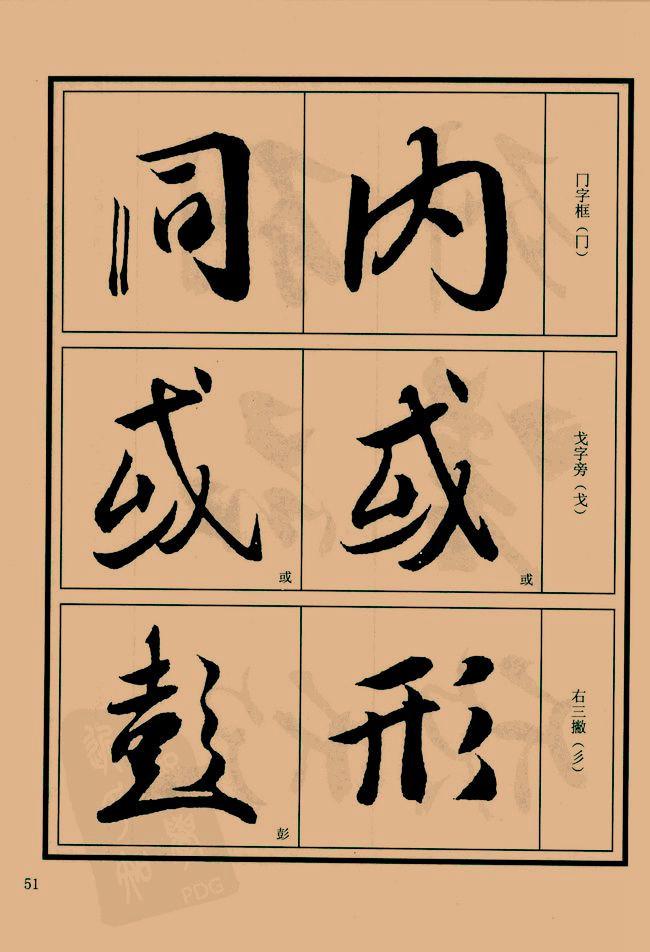 冂字框（冂）
内
同
戈字旁（戈）
或
或
或
或
右三撇（彡）
形
彭
彭
51
PDG